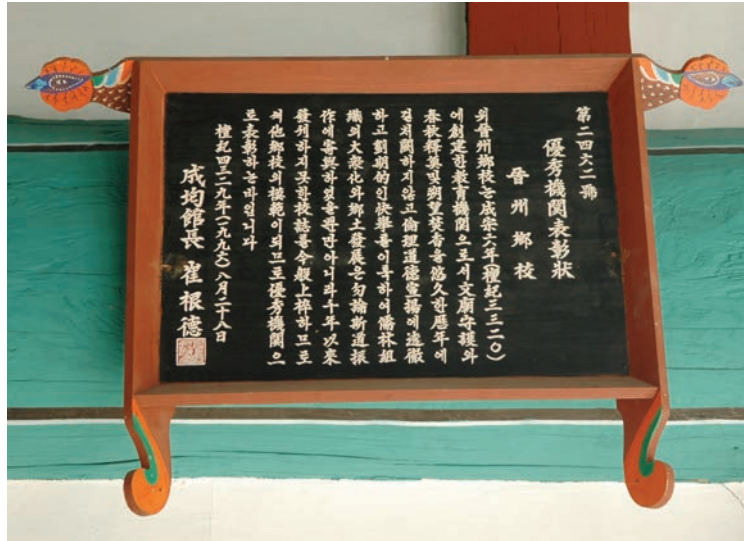 第二四六二號
優秀機關表彰狀
晉州鄕校
위晉州鄕校는成宗六年(檀紀三三二〇)
에創建한敎育機關으로서文廟守護와
春秋釋奠및朔望焚香을悠久한歷年에
걸치闕하지않고倫理道德宣揚에透徹
하고劃期的인快擧를이룩하여儒林組
織의大衆化와鄕土發展은勿論斯道振
作에寄與하였을뿐만아니라六十年以來
發刊하지못한校誌를今般上梓하므로
써他鄕校의模範이되므로優秀機關으
로表彰하는바입니다
檀紀四三二九年(一九九六)八月二十八日
成均館長 崔根德